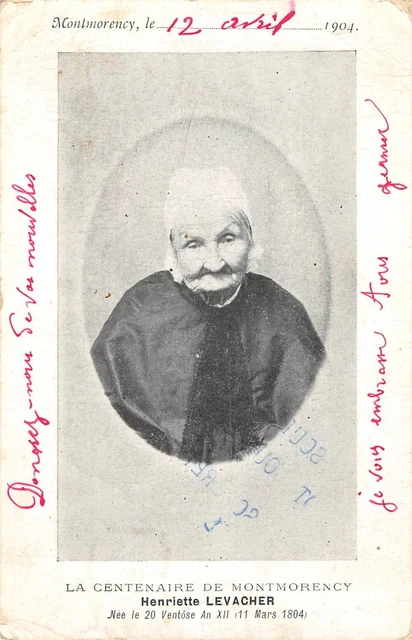 Montmorency, le 12 avril 1904.
Donnez-nous de vos nouvelles
je vous embrasse tous
LA CENTENAIRE DE MONTMORENCY
Henriette LEVACHER
Née le 20 Ventôse An XII (11 Mars 1804)